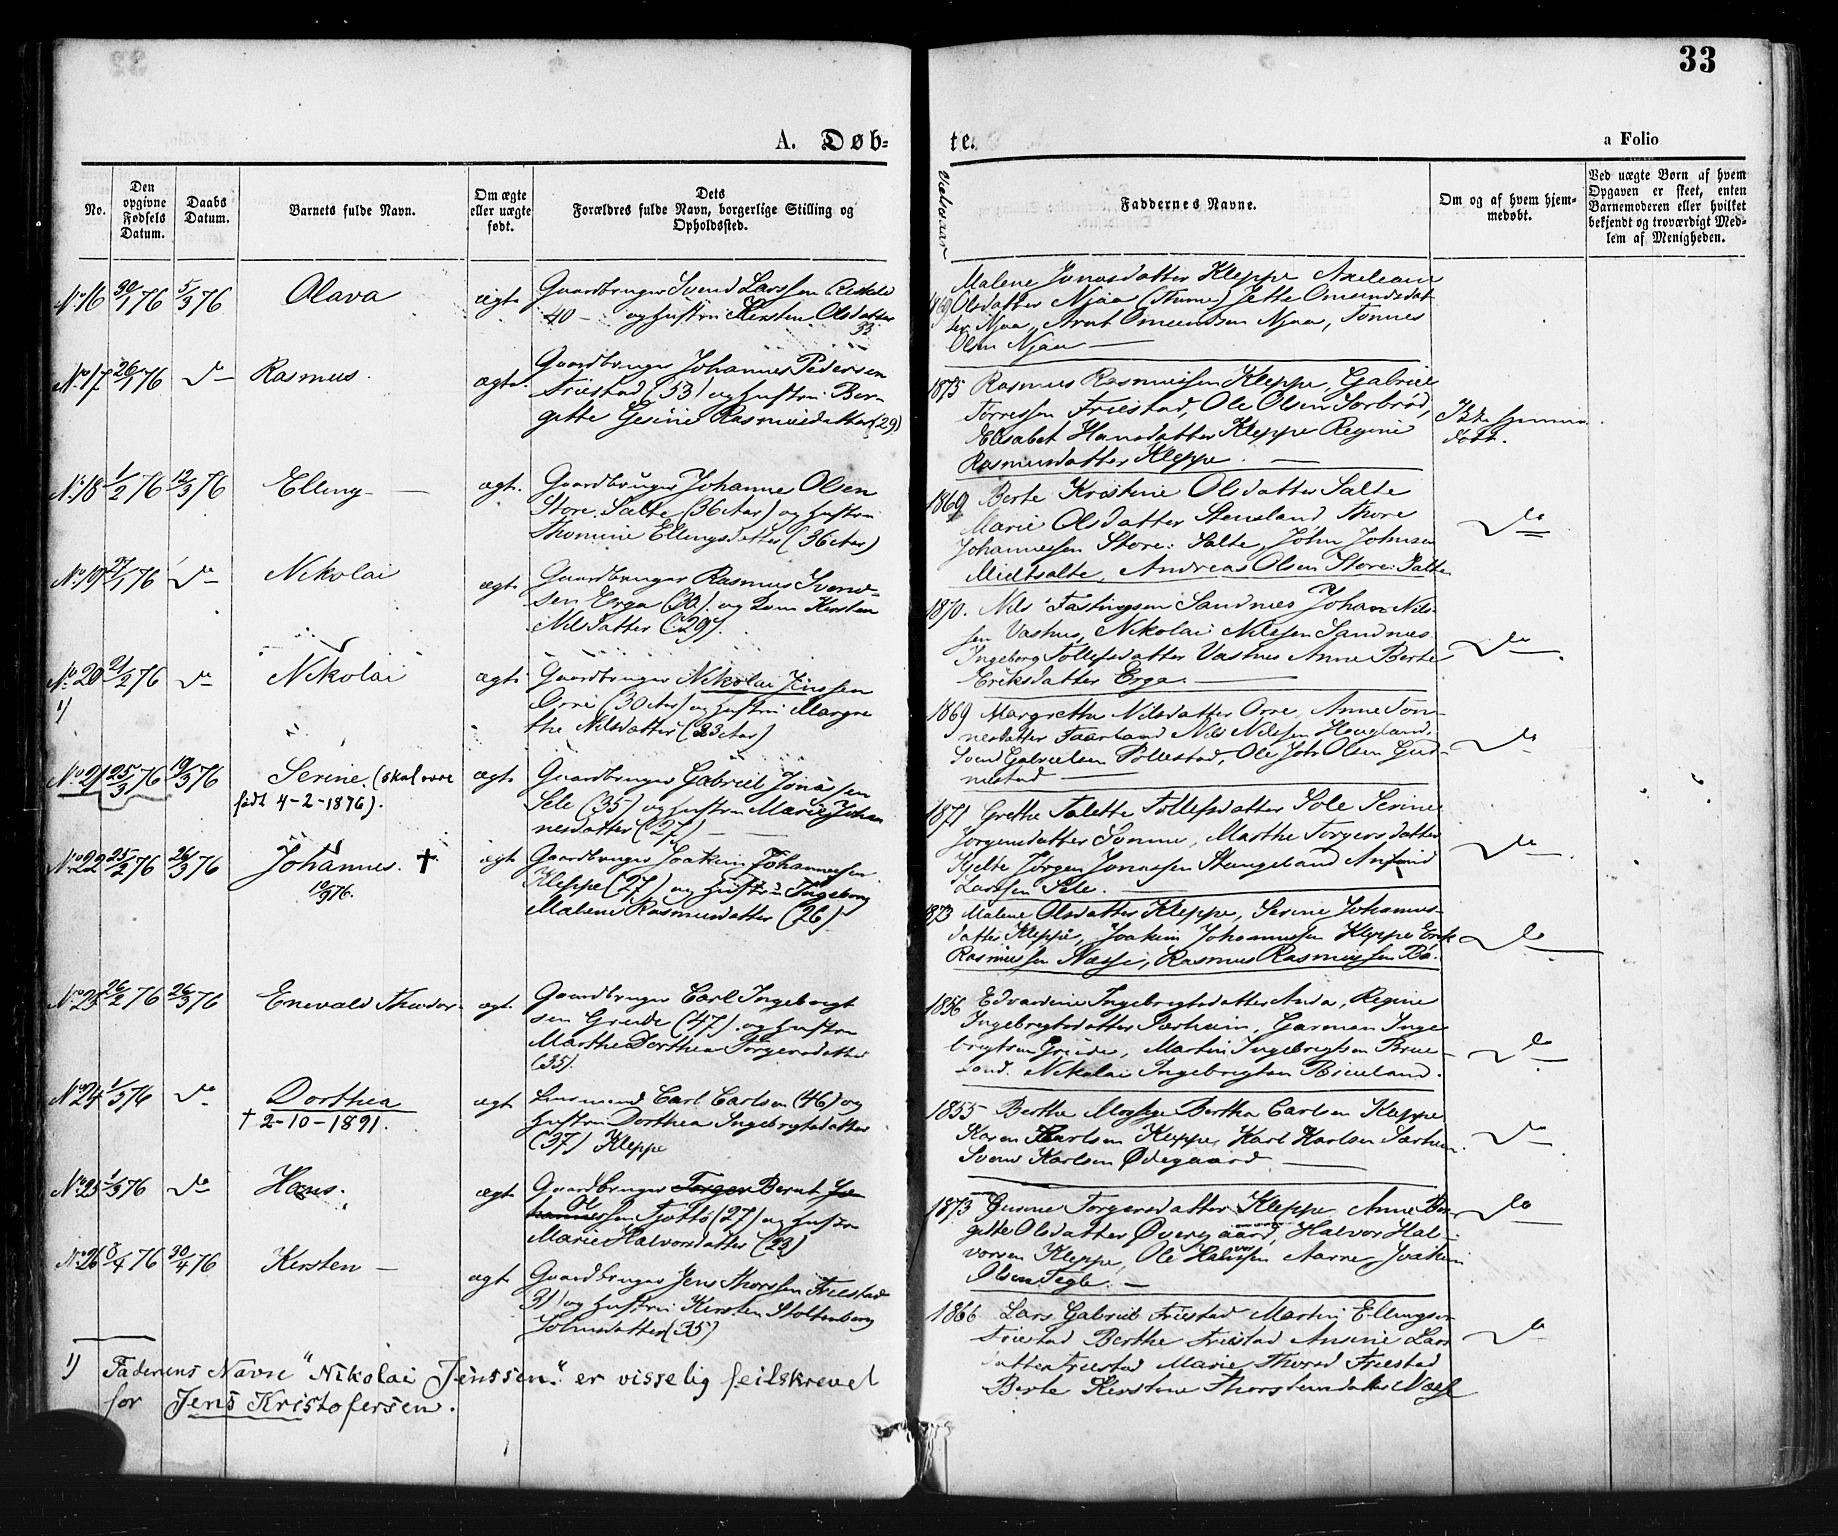 33
A. Døb-
te.
a Folio
No.
Den opgivne Fødsels Datum.
Daabs Datum.
Barnets fulde Navn.
Om ægte eller uægte født.
Dets Forældres fulde Navn, borgerlige Stilling og Opholdssted.
Faddernes Navne.
Om og af hvem hjemmedøbt.
Ved uægte Børn af hvem Opgaven er skeet, enten Barnemoderen eller hvilket bekjendt og troværdigt Medlem af Menigheden.
No 16 30/1 76 5/3 76 Olava ægt. Gaardbruger Svend Larssen
40 – og Hustru Kersten Olsdatter
33
Malene Jonasdatter Kleppe
1869 Olsdatter Njaa (Thime) Jette Omundsdat-
ter Njaa, Arnt Omundsen Njaa, Tønnes
Olsen Njaa —
No 17 26/1 76 Do — Rasmus. ægte. Gaardbruger Johannes Pedersen
Friestad (53) og Hustru Ber-
gitte Gesine Rasmusdatter (29)
1875 Rasmus Rasmussen Kleppe, Gabriel
Torressen Friestad, Ole Olsen Sørbrød,
Elisabet Hansdatter Kleppe Regine
Rasmusdatter Kleppe. —
Ikke hjemme
døbt.
No 18 1/2 76 12/3 76 Elling — ægt. Gaardbruger Johanne Olsen
Store Salte (36 Aar) og Hustru
Thomine Ellingsdatter (36 Aar)
1869 Berte Kristine Olsdatter Salte
Marie Olsdatter Stensland Thore
Johannessen Store: Salte, John Johnsen
Midtsalte, Andreas Olsen Store: Salte
Do
No 19 27/1 76 Do Nikolai ægt. Gaardbruger Rasmus Svend-
sen Erga (30) og Kone Kirsten
Nilsdatter (29).
1870. Nils Fastingsen Sandnes Johan Nils-
sen Vashus, Nikolai Nilssen Sandnes
Ingeborg Tollefsdatter Vashus Anne Berte
Eriksdatter Erga. —
Do
No 20 21/2 76 Do Nikolai ægt. Gaardbruger Nikolai Jenssen
1)
Orre (30 Aar) og Hustru Margre
the Nilsdatter (33 Aar)
1869 Margrethe Nilsdatter Orre, Anne Tøn-
nesdatter Faarland Nils Nilssen Hougland,
Svend Gabrielsen Pollestad, Ole Joh Olsen Gud-
mestad —
Do
No 21 25/3 76 19/3 76 Serine. (skal være ægt. Gaardbruger Gabriel Jonassen
født 4-2-1876).
Sele (35) og Hustru Marie Johan
nesdatter (27) —
1871 Grethe Talette Tollefsdatter Sole Serine
Jørgensdatter Somme, Marthe Torgersdatter
Kjelte Jørgen Jonassen Stangeland
Larssen Sele. —
Do
No 22 25/2 76 26/3 76 Johannes. † ægt Gaardbruger Joakim Johannessen
10/9 76.
Kleppe (27) og Hustru Ingeborg
Malene Rasmusdatter (26)
1873 Malene Olsdatter Kleppe, Serine Johannes-
datter Kleppe, Joakim Johannessen Kleppe Erik
Rasmussen Næsse, Rasmus Rasmussen Bø.
Do
No 23 26/2 76 26/3 76 Enevald Theodor ægt. Gaardbruger Carl Ingebrigt
sen Grude (47) og Hustru
Marthe Dorthea Torgersdatter
(35).
1856 Edvardine Ingebrigtsdatter Anda, Regine
Ingebrigtsdatter Sørheim, Garman Inge
brigtsen Grude, Martin Ingebrigtsen Brue
land. Nikolai Ingebrigtsen Brueland.
Do
No 24 1/3 76 Do Dorthea ægt. Lensmand Carl Carlsen (46) og
† 2-10-1891.
Hustru Dorthea Ingebrigtsdatter
(37) Kleppe
1855 Berthe Mossige Bertha Carlsen Kleppe
Karen Karlsen Kleppe, Karl Karlsen Sørheim
Svend Karlsen Ødegaard —
Do
No 25 1/3 76 Do Hans. ægt Gaardbruger Torger Bernt Jo-
hannessen Tjøttø (27) og Hustru
Marie Halvorsdatter (23)
1873 Gunne Torgersdatter Kleppe Anne Ber
gitte Olsdatter Øvergaard, Halvor Hal-
vorsen Kleppe, Ole Halvorsen Aarre, Joakim
Olsen Tegle. —
Do
No 26 8/4 76 30/4 76 Kersten — ægt Gaardbruger Jens Thorssen Friestad
31) og Hustru Kersten Stoltenberg
Johnsdatter (35)
1866 Lars Gabriel Friestad Martin Ellingsen
Friestad Berthe Friestad Ansine Lars
datter Friestad Marie Thored Friestad
Berte Kerstine Thorsteinsdatter Næse
Do
1) Faderens Navne "Nikolai Jenssen" er visselig feilskrevet
for Jens Kristofersen.